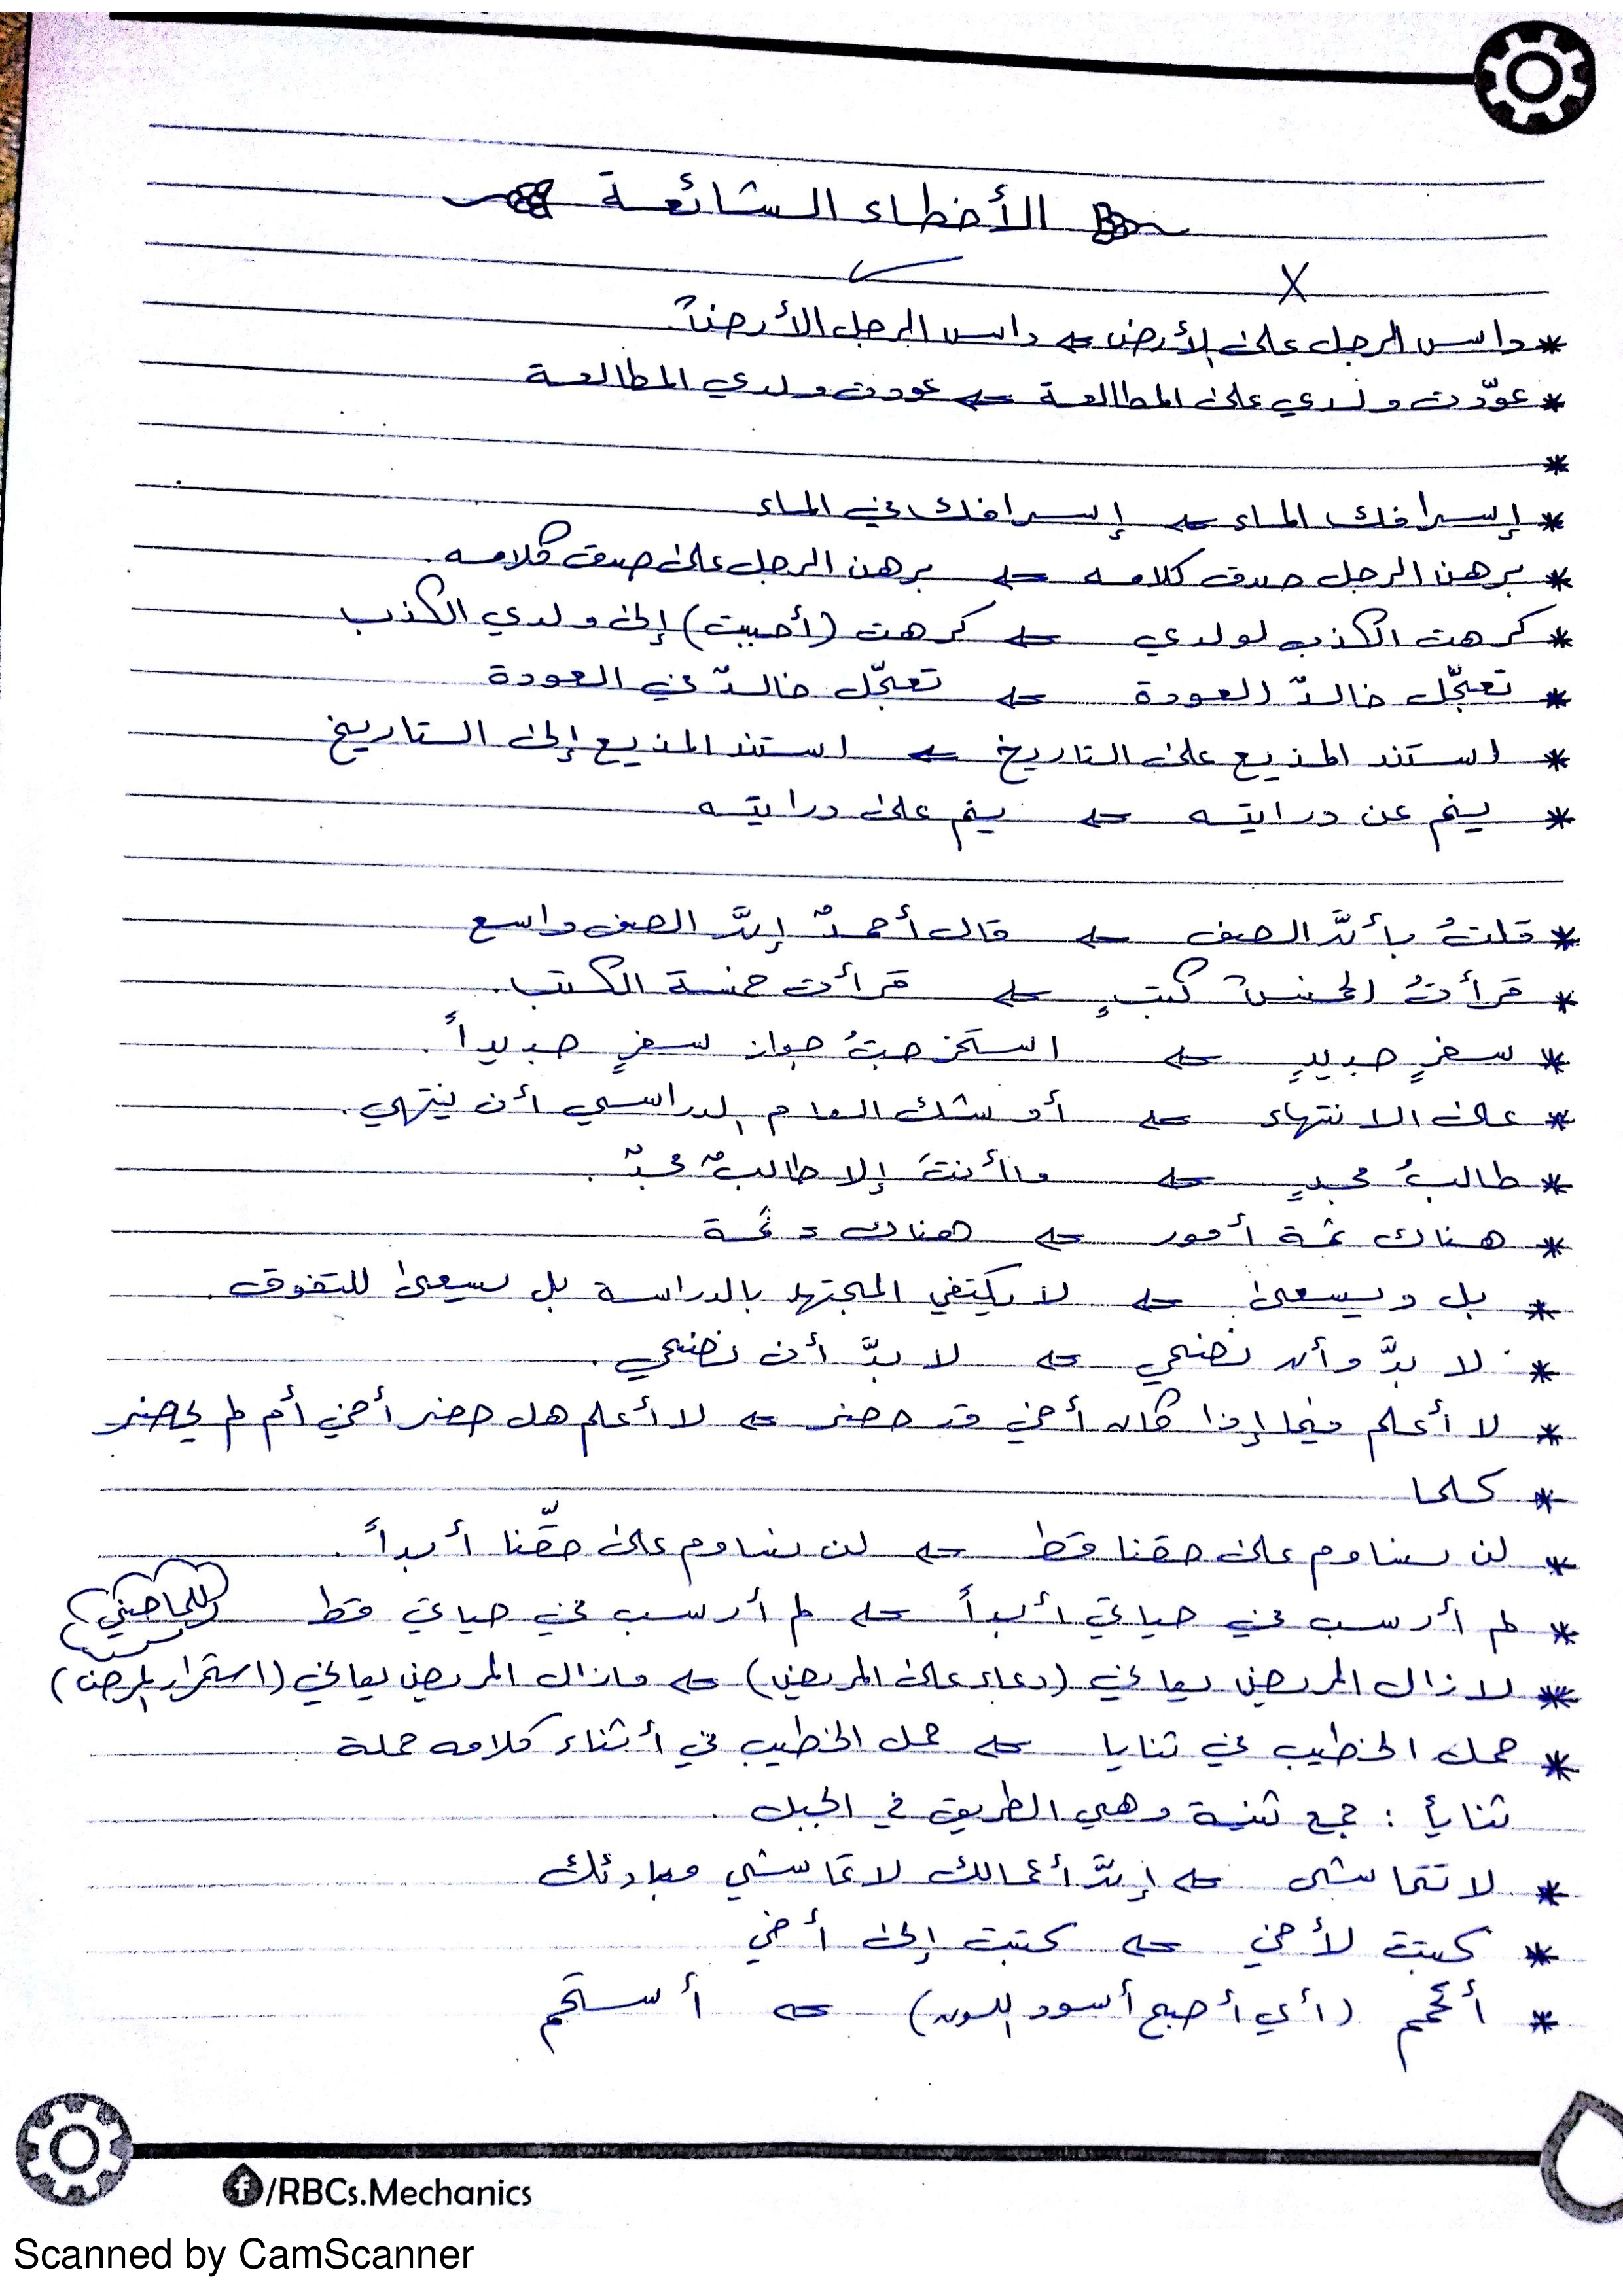 الأخطاء الشائعة
X ✓
* داس الرجل على الأرض ← داس الرجل الأرضَ.
* عوّدت ولدي على المطالعة ← عودت ولدي المطالعة
*
* إسرافك الماء ← إسرافك في الماء
* برهن الرجل صدق كلامه ← برهن الرجل على صدق كلامه.
* كرهت الكذب لولدي ← كرهت (أحببت) إلى ولدي الكذب
* تعجّل خالدٌ العودة ← تعجّل خالدٌ في العودة
* استند المذيع على التاريخ ← استند المذيع إلى التاريخ
* ينم عن درايته ← ينم على درايته
* قلتُ بأنَّ الصف ← قال أحمدٌ إنَّ الصف واسع
* قرأتُ الخمسَ كتبٍ ← قرأت خمسة الكتب.
* سفرٍ جديدٍ ← استخرجتُ جواز سفرٍ جديداً.
* على الانتهاء ← أوشك العام الدراسي أن ينتهي.
* طالبُ مجدٍ ← ما أنتَ إلا طالبٌ مجدٌ.
* هناك ثمة أمور ← هناك = ثمة
* بل ويسعى ← لا يكتفي المجتهد بالدراسة بل يسعى للتفوق.
* لا بدَّ وأن نضحي ← لا بدَّ أن نضحي.
* لا أعلم فيما إذا كان أخي قد حضر ← لا أعلم هل حضر أخي أم لم يحضر
* كلما
* لن نساوم على حقنا قط ← لن نساوم على حقِّنا أبداً.
* لم أرسب في حياتي أبداً ← لم أرسب في حياتي قط للماضي
* لا زال المريض يعاني (دعاء على المريض) ← مازال المريض يعاني (استمرار المرض)
* حمل الخطيب في ثنايا ← حمل الخطيب في أثناء كلامه حملة
ثنايا : جمع ثنية وهي الطريق في الجبل.
* لا تتماشى ← إنَّ أعمالك لا تماشي مبادئك
* كتبت لأخي ← كتبت إلى أخي
* أتحمم (أي أصبح أسود اللون) ← أستحم
/RBCs.Mechanics
Scanned by CamScanner